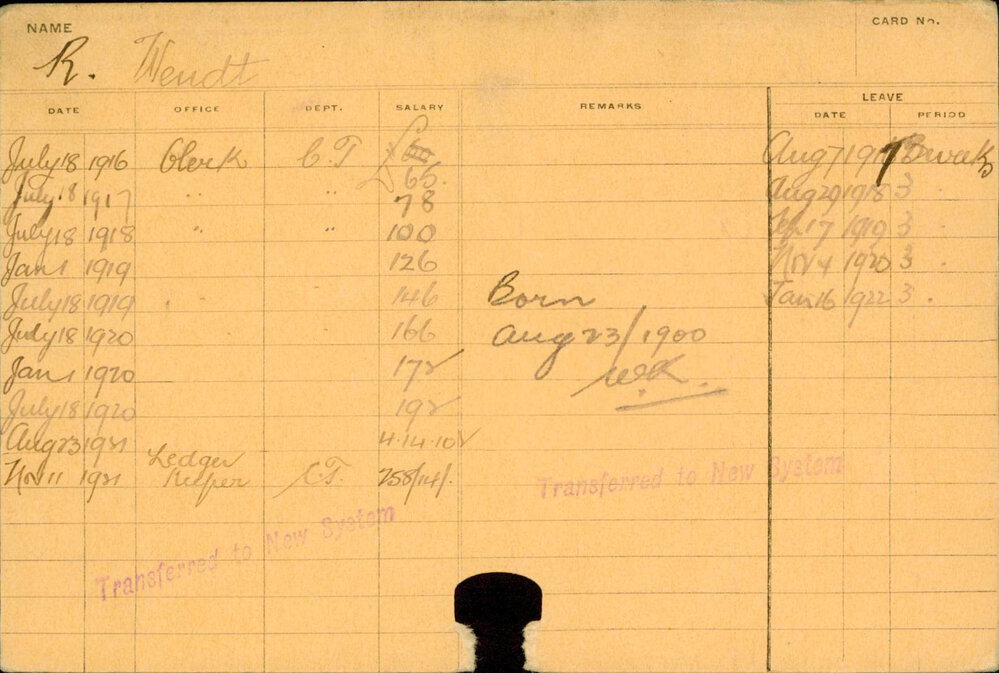 NAME CARD No.
R. Wendt
DATE OFFICE DEPT. SALARY REMARKS LEAVE
DATE PERIOD
July 18 1916 Clerk C.T £ 65. Aug 7 1917 3 weeks
July 18 1917 " " 78 Aug 29 1918 3 "
July 18 1918 " " 100 Sep 17 1919 3 "
Jan 1 1919 126 Nov 4 1920 3 "
July 18 1919 " " 146 Born Jan 16 1922 3 "
July 18 1920 166 Aug 23/1900
Jan 1 1920 172 W.K.
July 18 1920 192
Aug 23 1921 4.14.10
Nov 11 1921 Ledger Keeper C.T. 258/14/.
Transferred to New System
Transferred to New System